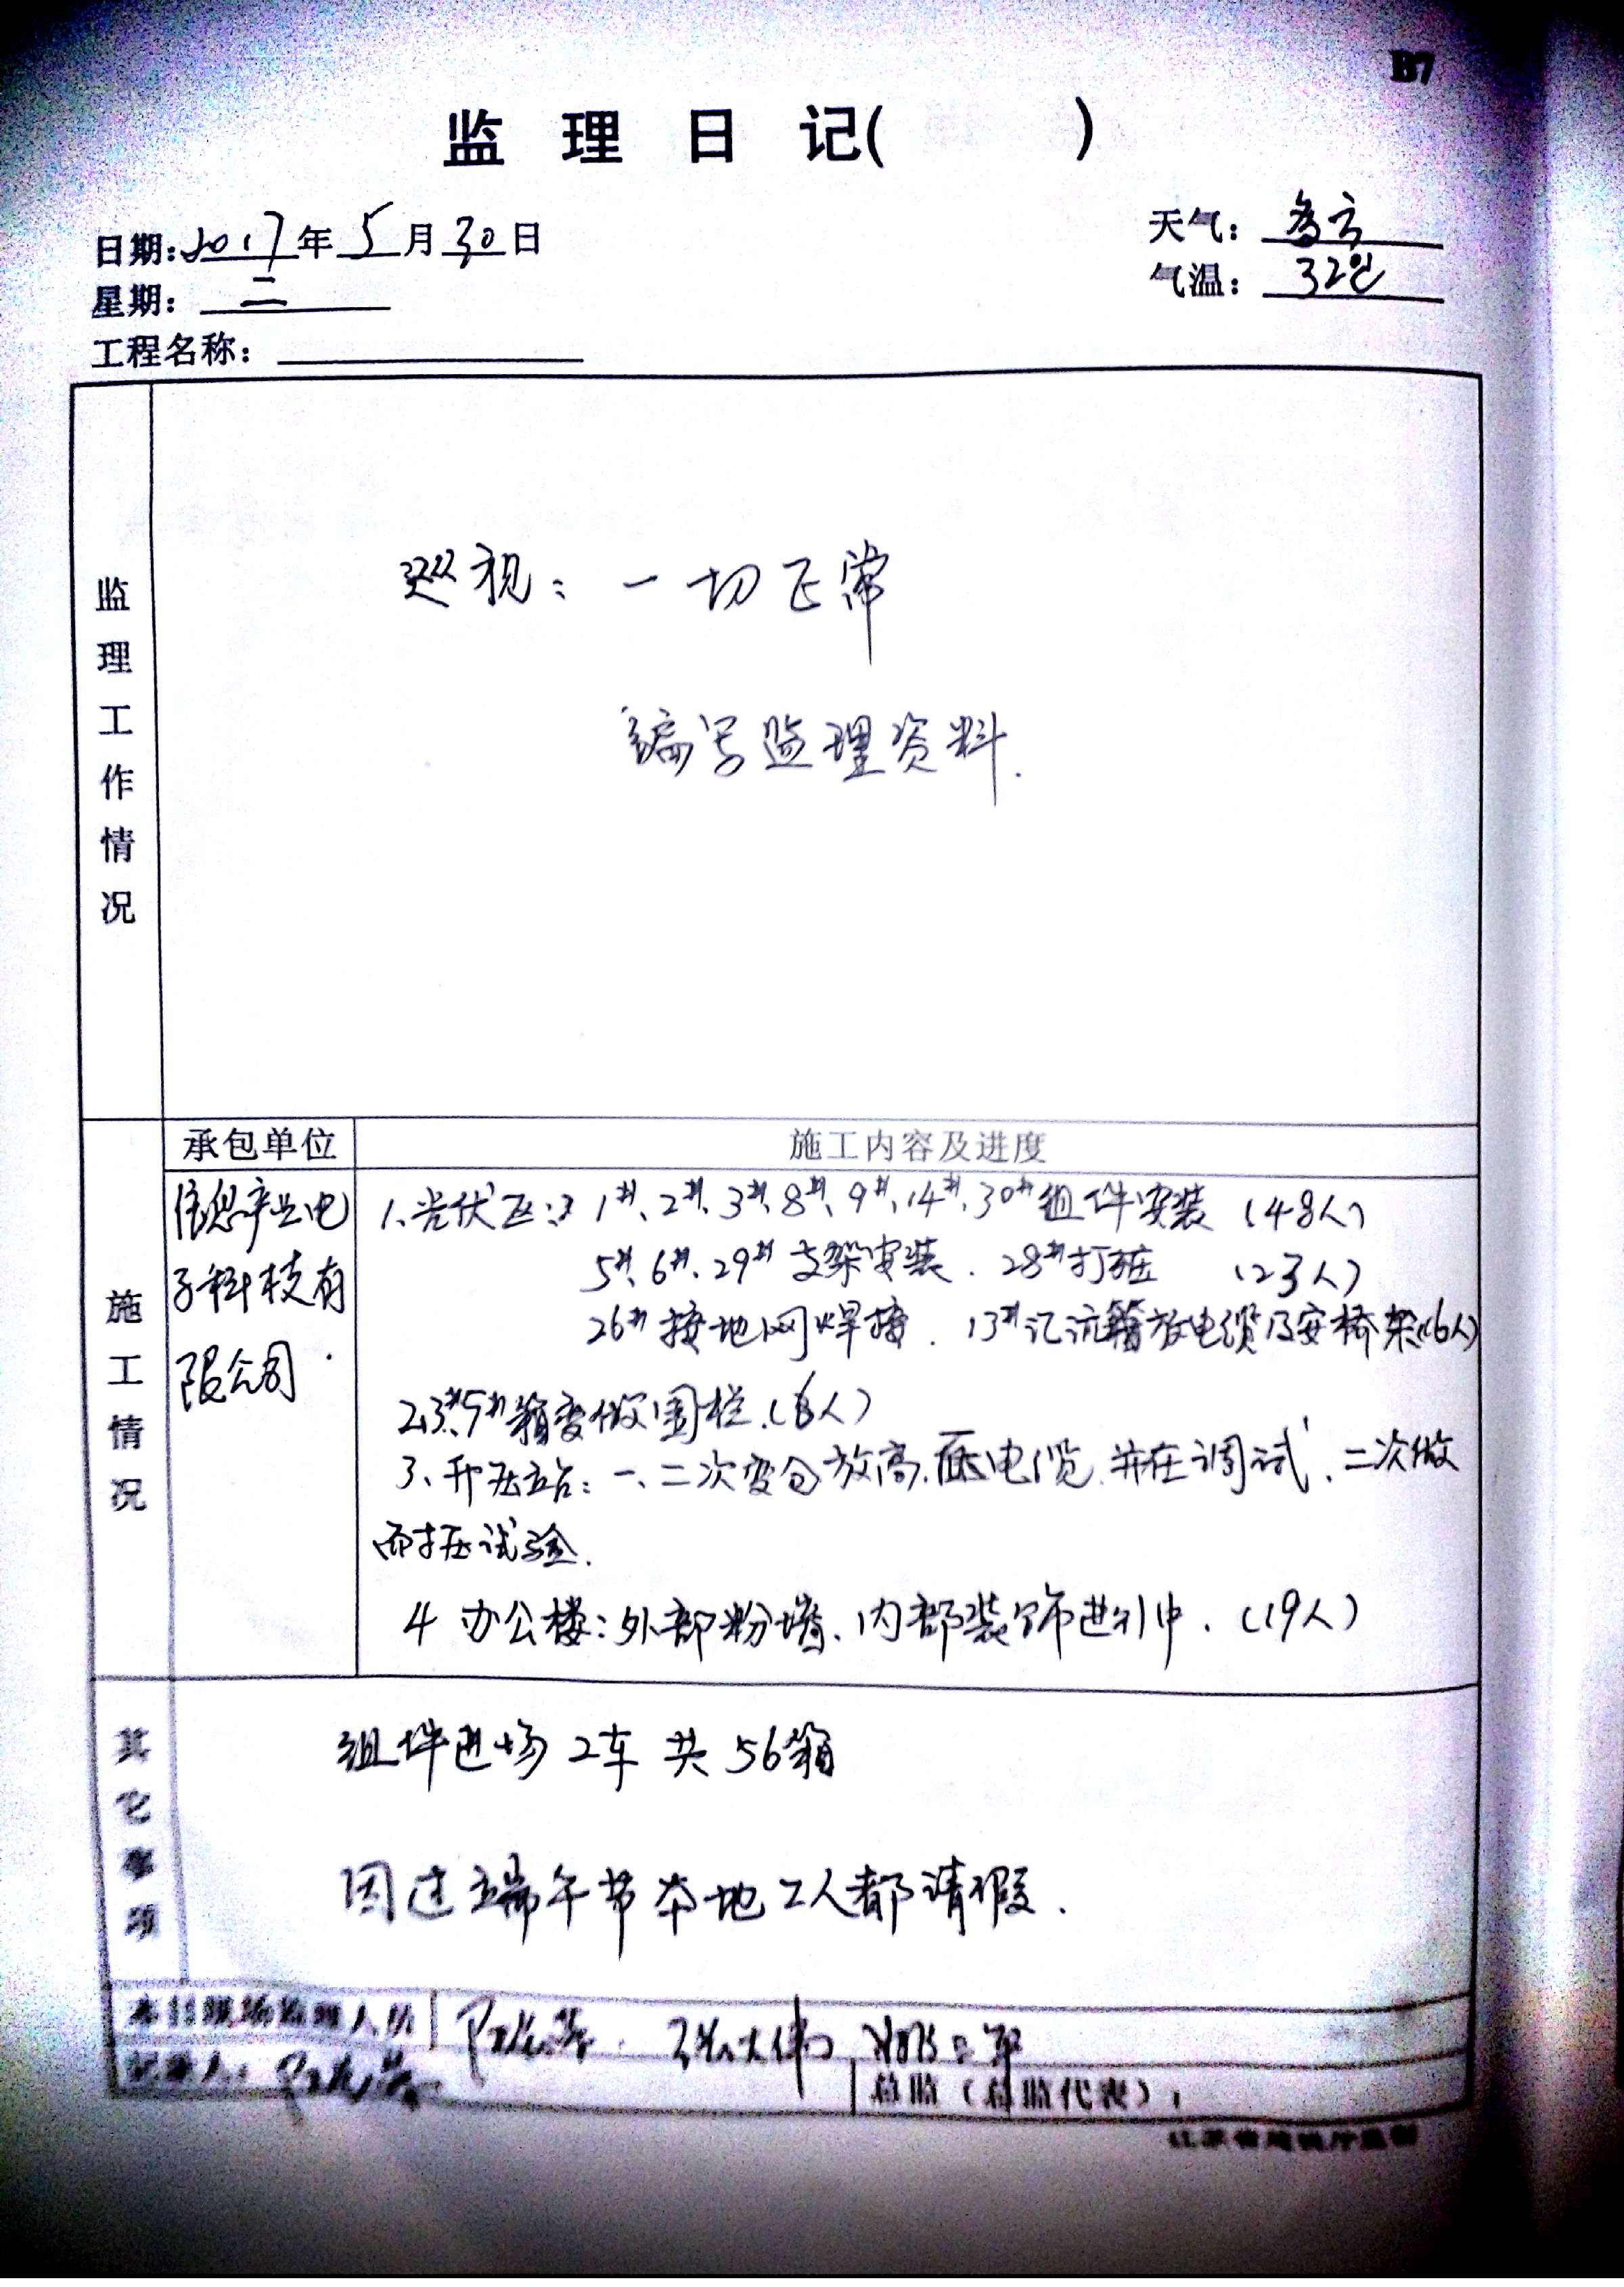 B7
监理日记(　　)
日期:2017年5月30日
天气：多云
星期：二
气温：32℃
工程名称：
监理工作情况
巡视：一切正常
编写监理资料.
承包单位
施工内容及进度
施工情况
信息产业电
子科技有
限公司.
1、光伏区: 1#、2#、3#、8#、9#、14#、30#组件安装 (48人)
5#、6#、29#支架安装. 28#打桩 (23人)
26#接地网焊接. 13#汇流箱放电缆及安桥架(6人)
2、3#、5#箱变做围栏.(6人)
3、升压站：一、二次变仓放高.低压电缆.并在调试、二次做
耐压试验.
4 办公楼：外部粉墙、内部装饰进行中.(19人)
其它事项
组件进场 2车 共56箱
因过端午节本地工人都请假.
本日现场监理人员
记录人：
总监（总监代表）：